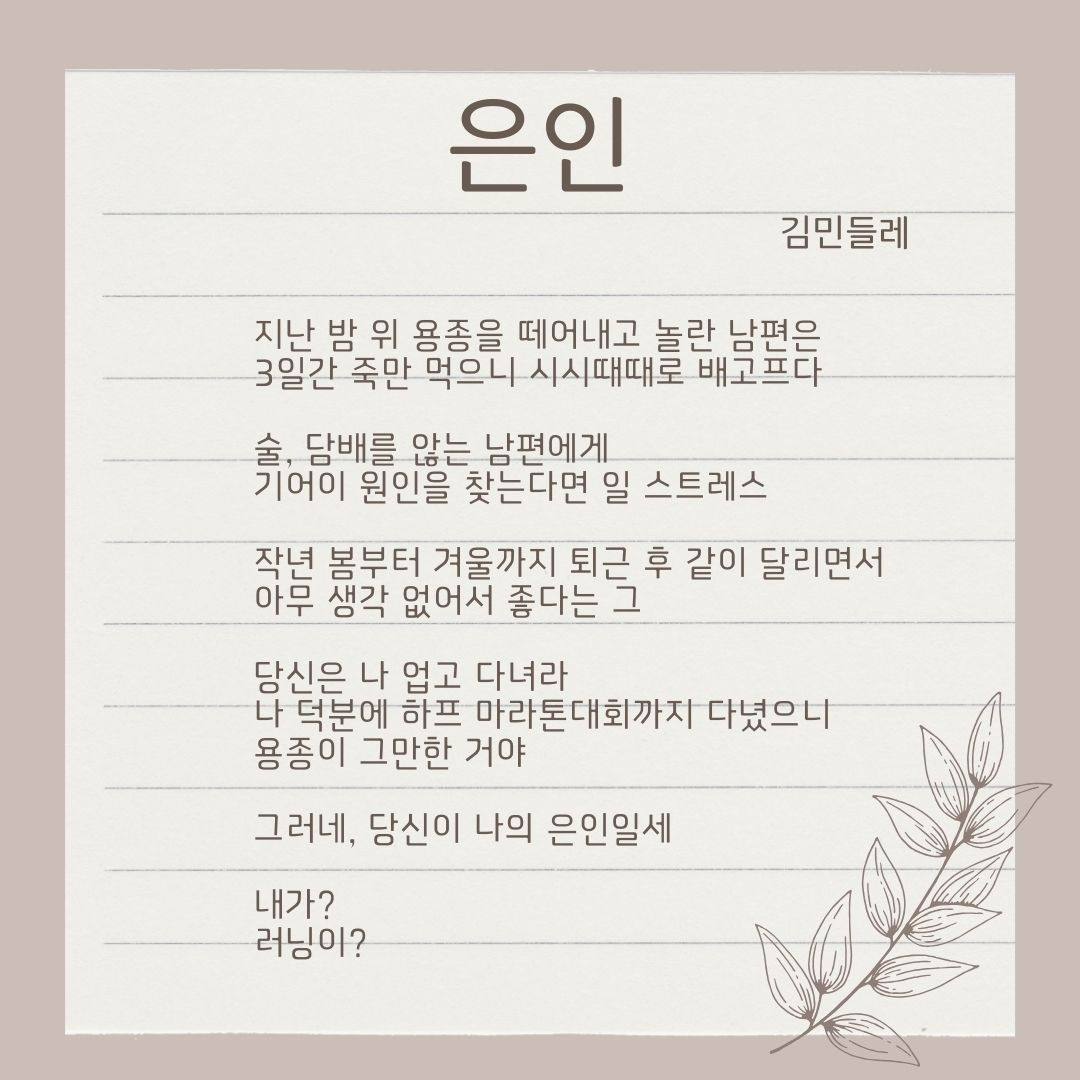 은인
김민들레
지난 밤 위 용종을 떼어내고 놀란 남편은
3일간 죽만 먹으니 시시때때로 배고프다
술, 담배를 않는 남편에게
기어이 원인을 찾는다면 일 스트레스
작년 봄부터 겨울까지 퇴근 후 같이 달리면서
아무 생각 없어서 좋다는 그
당신은 나 업고 다녀라
나 덕분에 하프 마라톤대회까지 다녔으니
용종이 그만한 거야
그러네, 당신이 나의 은인일세
내가?
러닝이?